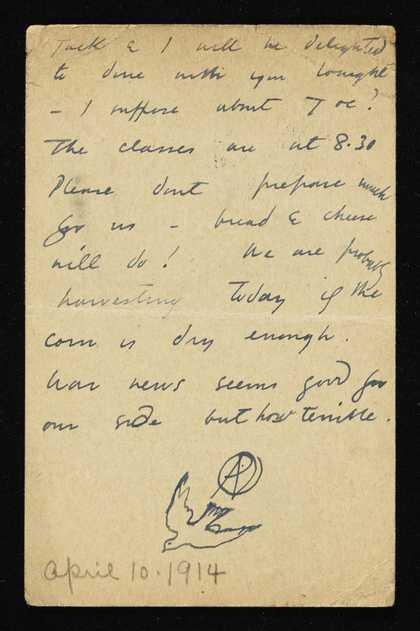 Tuck & I will be delighted
to dine with you tonight
– I suppose about 7 oc?
The classes are at 8.30
Please dont prepare much
for us – bread & cheese
will do! We are probably
harvesting today if the
corn is dry enough.
War news seems good for
our side but how terrible.
April 10. 1914